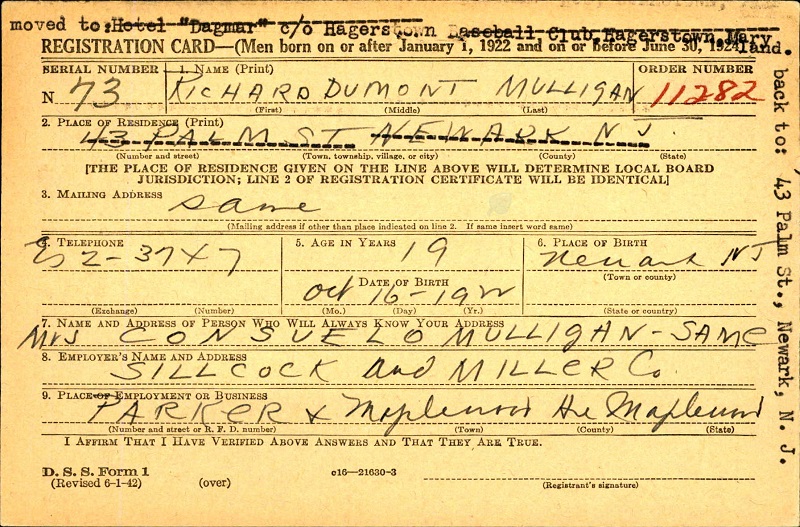 moved to: Hotel "Dagmar" c/o Hagerstown Baseball Club, Hagerstown, Maryland.
REGISTRATION CARD—(Men born on or after January 1, 1922 and on or before June 30, 1924)
SERIAL NUMBER
1. NAME (Print)
ORDER NUMBER
N 73
RICHARD DUMONT MULLIGAN
11282
(First) (Middle) (Last)
2. PLACE OF RESIDENCE (Print)
43 PALM ST NEWARK N J.
(Number and street) (Town, township, village, or city) (County) (State)
[THE PLACE OF RESIDENCE GIVEN ON THE LINE ABOVE WILL DETERMINE LOCAL BOARD
JURISDICTION; LINE 2 OF REGISTRATION CERTIFICATE WILL BE IDENTICAL]
3. MAILING ADDRESS
same
(Mailing address if other than place indicated on line 2. If same insert word same)
4. TELEPHONE
2-3747
(Exchange) (Number)
5. AGE IN YEARS
19
DATE OF BIRTH
Oct 16-1922
(Mo.) (Day) (Yr.)
6. PLACE OF BIRTH
Newark NJ
(Town or county)
(State or country)
7. NAME AND ADDRESS OF PERSON WHO WILL ALWAYS KNOW YOUR ADDRESS
Mrs CONSUELO MULLIGAN-SAME
8. EMPLOYER'S NAME AND ADDRESS
SILLCOCK and MILLER Co.
9. PLACE OF EMPLOYMENT OR BUSINESS
PARKER & Maplewood Maplewood
(Number and street or R. F. D. number) (Town) (County) (State)
I AFFIRM THAT I HAVE VERIFIED ABOVE ANSWERS AND THAT THEY ARE TRUE.
D. S. S. Form 1
(Revised 6-1-42) (over)
c16—21630-3
(Registrant's signature)
back to: 43 Palm St., Newark, N. J.